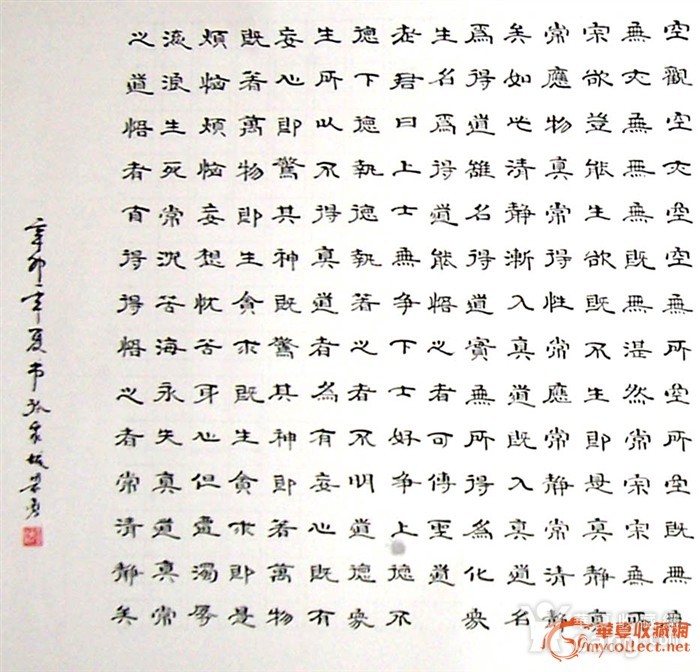 空觀空亦空空無所空所空既無無
無亦無無無既無湛然常寂寂無所
寂欲豈能生欲既不生即是真靜真
常應物真常得性常應常靜常清靜
矣如此清靜漸入真道既入真道名
爲得道雖名得道實無所得爲化衆
生名爲得道能悟之者可傳聖道
老君曰上士無爭下士好爭上德不
德下德執德執著之者不明道德衆
生所以不得真道者為有妄心既有
妄心即驚其神既驚其神即著萬物
既著萬物即生貪求既生貪求即是
煩惱煩惱妄想忧苦身心但遭濁辱
流浪生死常沉苦海永失真道真常
之道悟者自得得悟之者常清靜矣
辛卯年夏书
華夏收藏網
mycollect.com